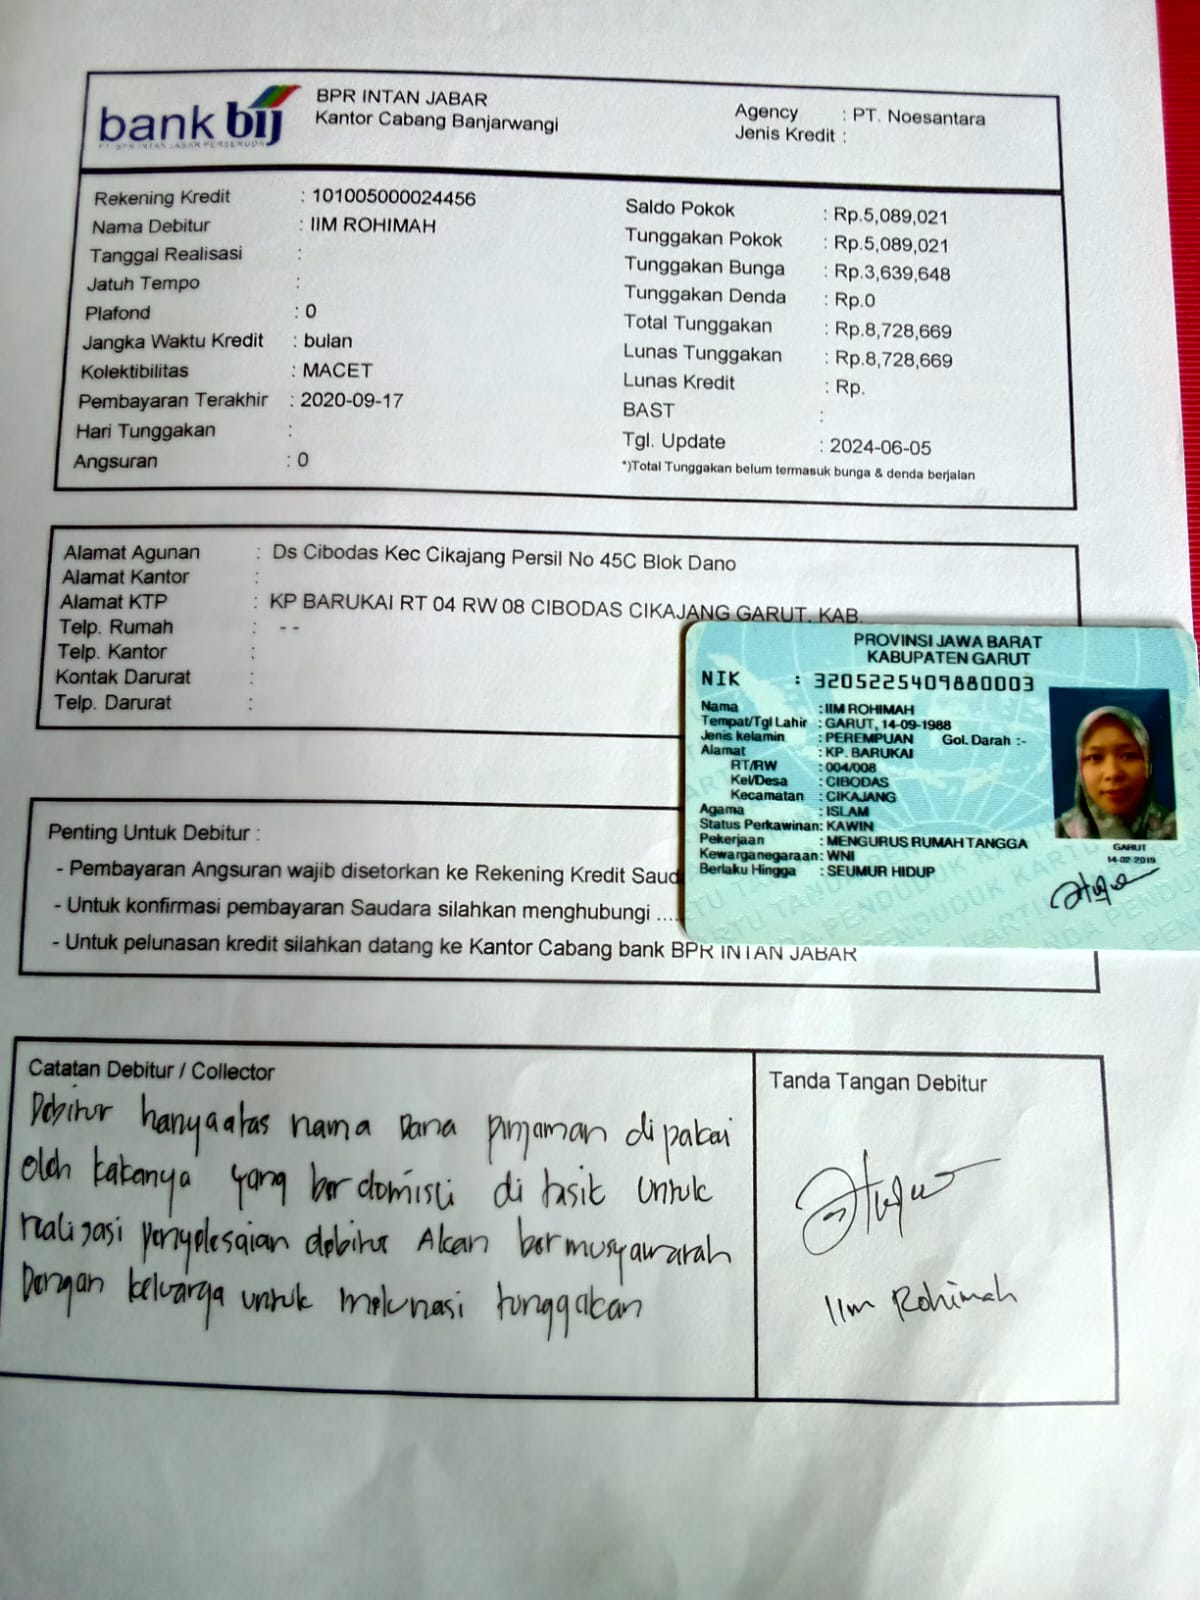 bank bij
PT. BPR INTAN JABAR PERSERODA
BPR INTAN JABAR
Kantor Cabang Banjarwangi
Agency : PT. Noesantara
Jenis Kredit :
Rekening Kredit : 101005000024456
Nama Debitur : IIM ROHIMAH
Tanggal Realisasi :
Jatuh Tempo :
Plafond : 0
Jangka Waktu Kredit : bulan
Kolektibilitas : MACET
Pembayaran Terakhir : 2020-09-17
Hari Tunggakan :
Angsuran : 0
Saldo Pokok : Rp.5,089,021
Tunggakan Pokok : Rp.5,089,021
Tunggakan Bunga : Rp.3,639,648
Tunggakan Denda : Rp.0
Total Tunggakan : Rp.8,728,669
Lunas Tunggakan : Rp.8,728,669
Lunas Kredit : Rp.
BAST :
Tgl. Update : 2024-06-05
*)Total Tunggakan belum termasuk bunga & denda berjalan
Alamat Agunan : Ds Cibodas Kec Cikajang Persil No 45C Blok Dano
Alamat Kantor :
Alamat KTP : KP BARUKAI RT 04 RW 08 CIBODAS CIKAJANG GARUT. KAB.
Telp. Rumah : - -
Telp. Kantor :
Kontak Darurat :
Telp. Darurat :
PROVINSI JAWA BARAT
KABUPATEN GARUT
NIK : 3205225409880003
Nama : IIM ROHIMAH
Tempat/Tgl Lahir : GARUT, 14-09-1988
Jenis kelamin : PEREMPUAN Gol. Darah :-
Alamat : KP. BARUKAI
RT/RW : 004/008
Kel/Desa : CIBODAS
Kecamatan : CIKAJANG
Agama : ISLAM
Status Perkawinan: KAWIN
Pekerjaan : MENGURUS RUMAH TANGGA
Kewarganegaraan: WNI
Berlaku Hingga : SEUMUR HIDUP
GARUT
14-02-2019
Penting Untuk Debitur :
- Pembayaran Angsuran wajib disetorkan ke Rekening Kredit Saud
- Untuk konfirmasi pembayaran Saudara silahkan menghubungi ....
- Untuk pelunasan kredit silahkan datang ke Kantor Cabang bank BPR INTAN JABAR
Catatan Debitur / Collector
Debitur hanya atas nama Dana pinjaman di pakai
oleh kakanya yang berdomisli di tasik untuk
realisasi penyelesaian debitur Akan bermusyawarah
Dengan keluarga untuk melunasi tunggakan
Tanda Tangan Debitur
Iim Rohimah